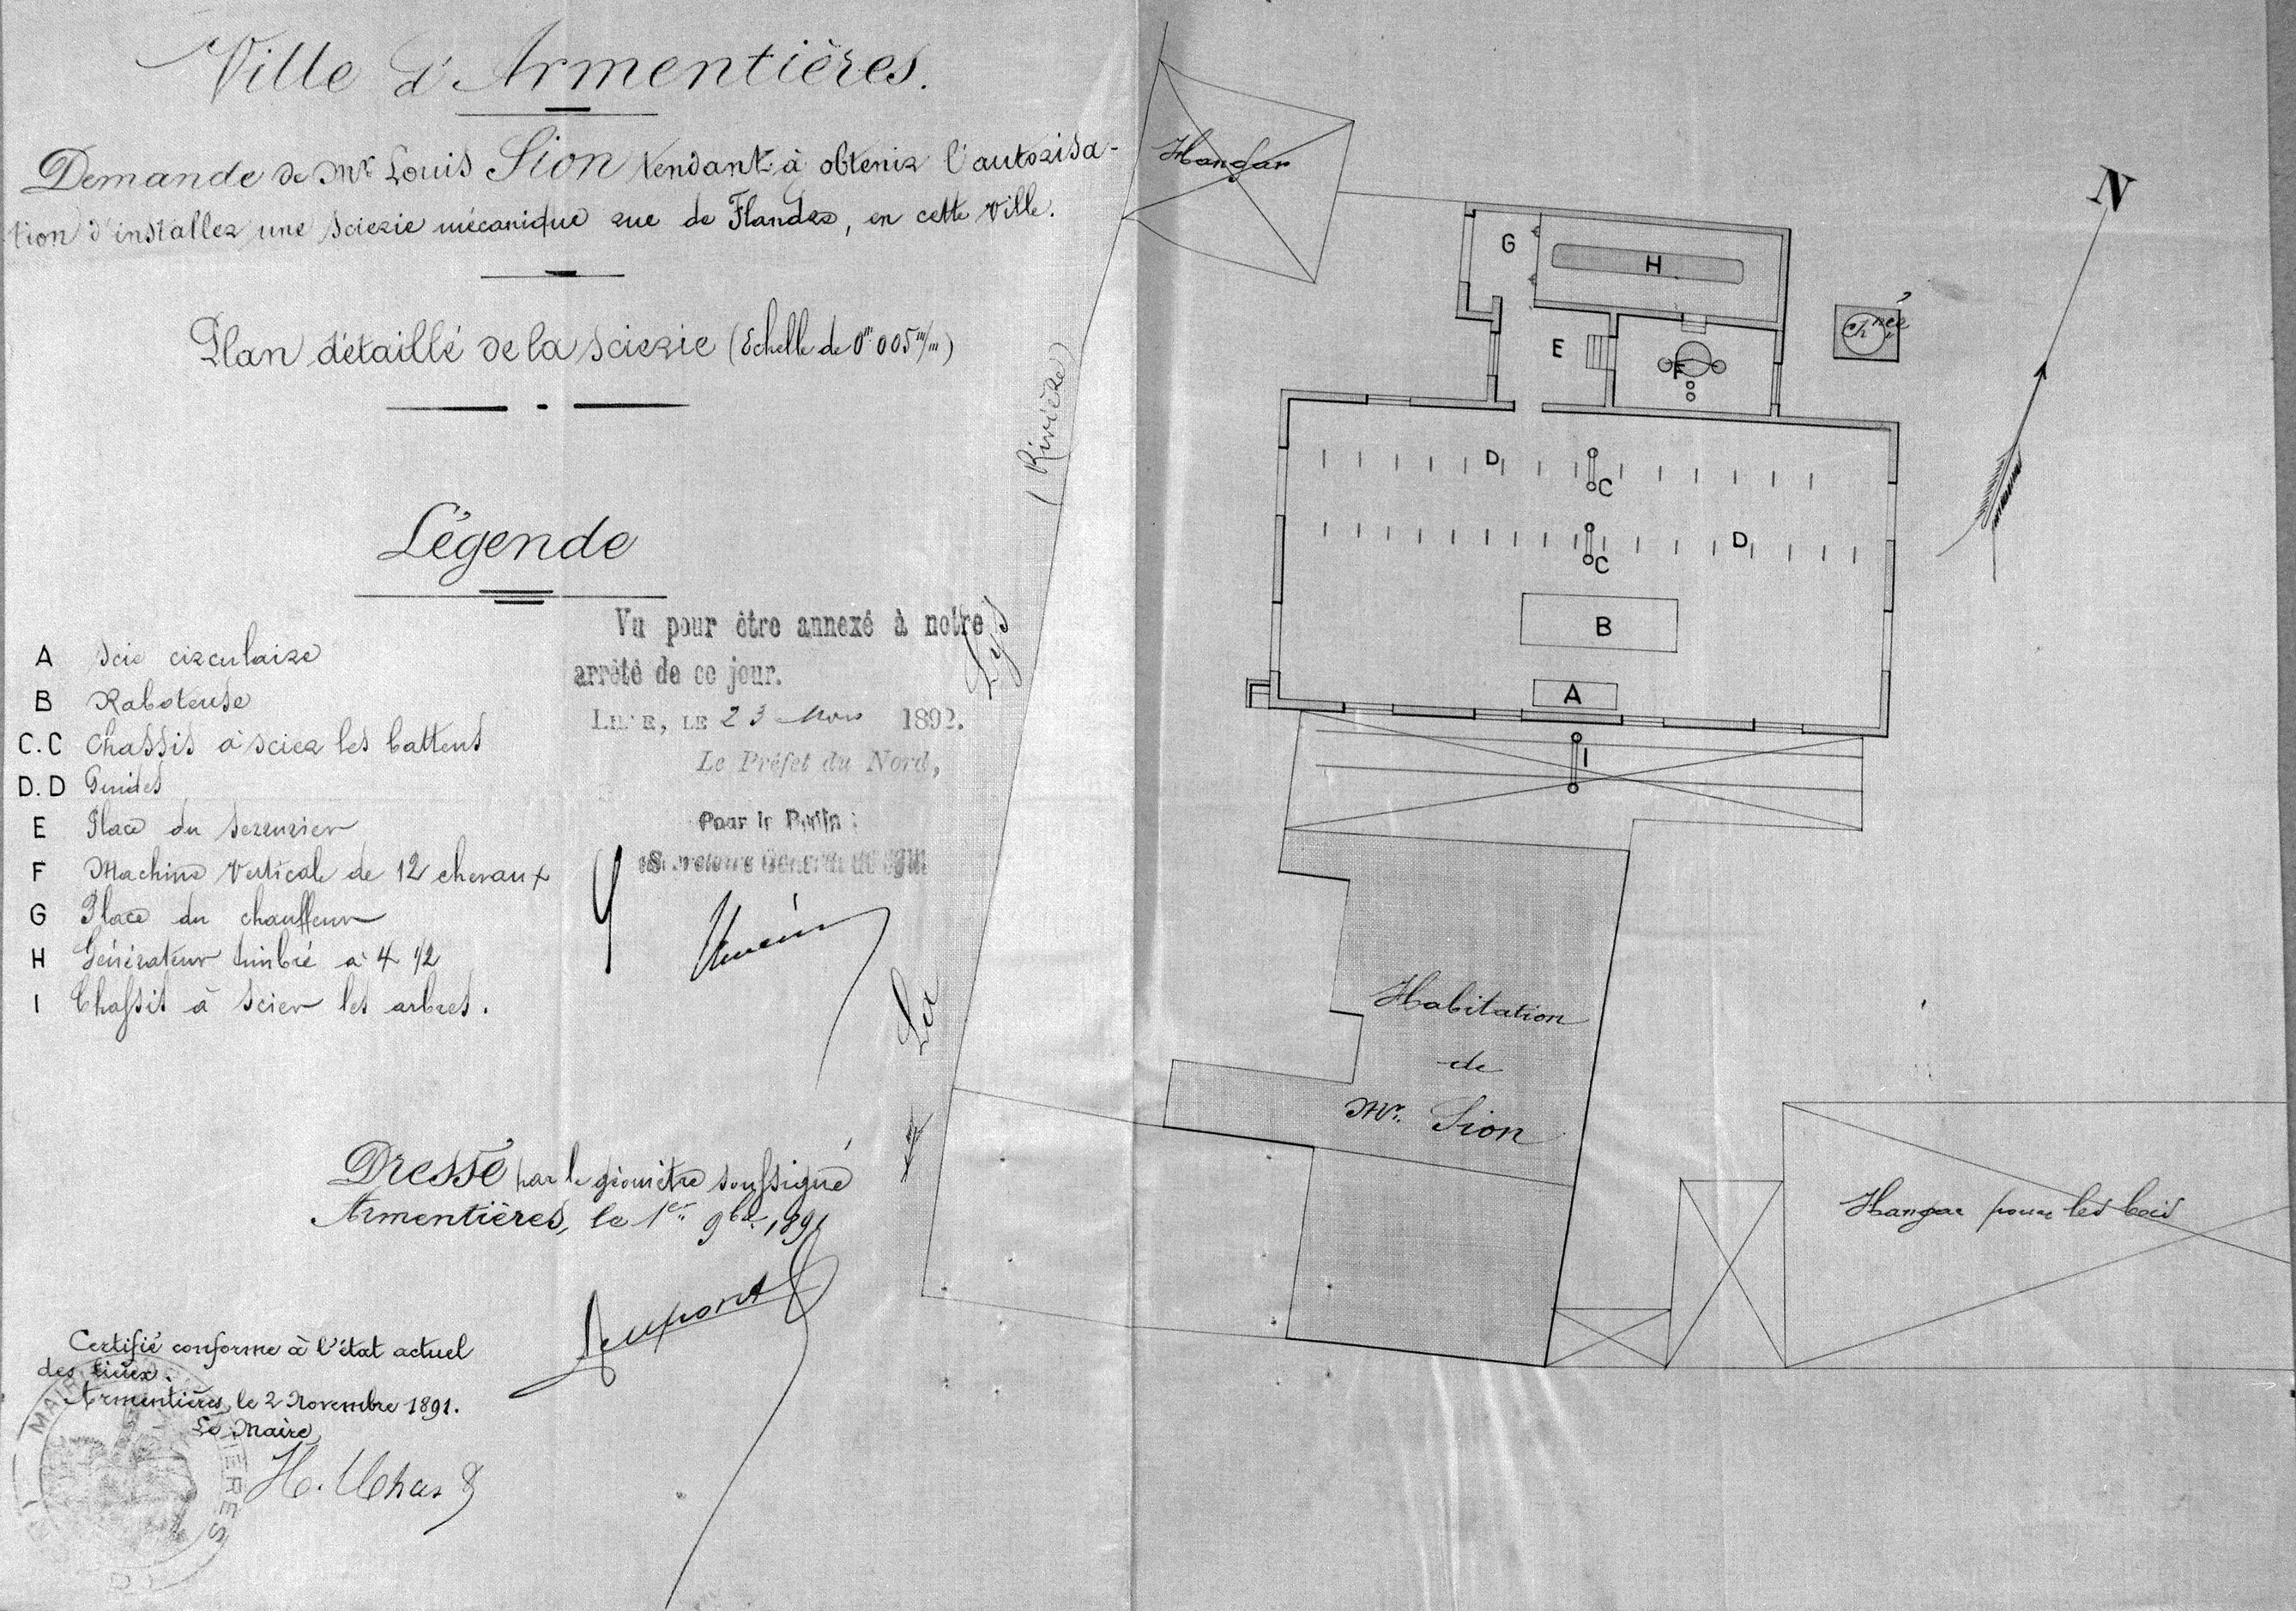 Ville d'Armentières.
Demande de Mr Louis Sion tendant à obtenir l'autorisa-
tion d'installer une scierie mécanique rue de Flandre, en cette Ville.
Plan détaillé de la scierie (Echelle de 0m005m/m)
Légende
A Scie circulaire
B Raboteuse
C.C Chassis à scier les battens
D.D Guides
E Place du serrurier
F Machine Verticale de 12 chevaux
G Place du chauffeur
H Générateur timbré à 4 1/2
I Chassis à scier les arbres.
Vu pour être annexé à notre
arrêté de ce jour.
LILLE, LE 23 Mars 1892.
Le Préfet du Nord,
Pour le Préfet :
Dressé par le géomètre soussigné
Armentières, le 1er 9bre 1891
Certifié conforme à l'état actuel
des lieux.
Armentières, le 2 Novembre 1891.
Le Maire,
MAIRIE
La Lys (Rivière)
Hangar
N
G
H
Chnée
E
F
D
C
D
C
B
A
I
Habitation
de
Mr. Sion
Hangar pour les bois